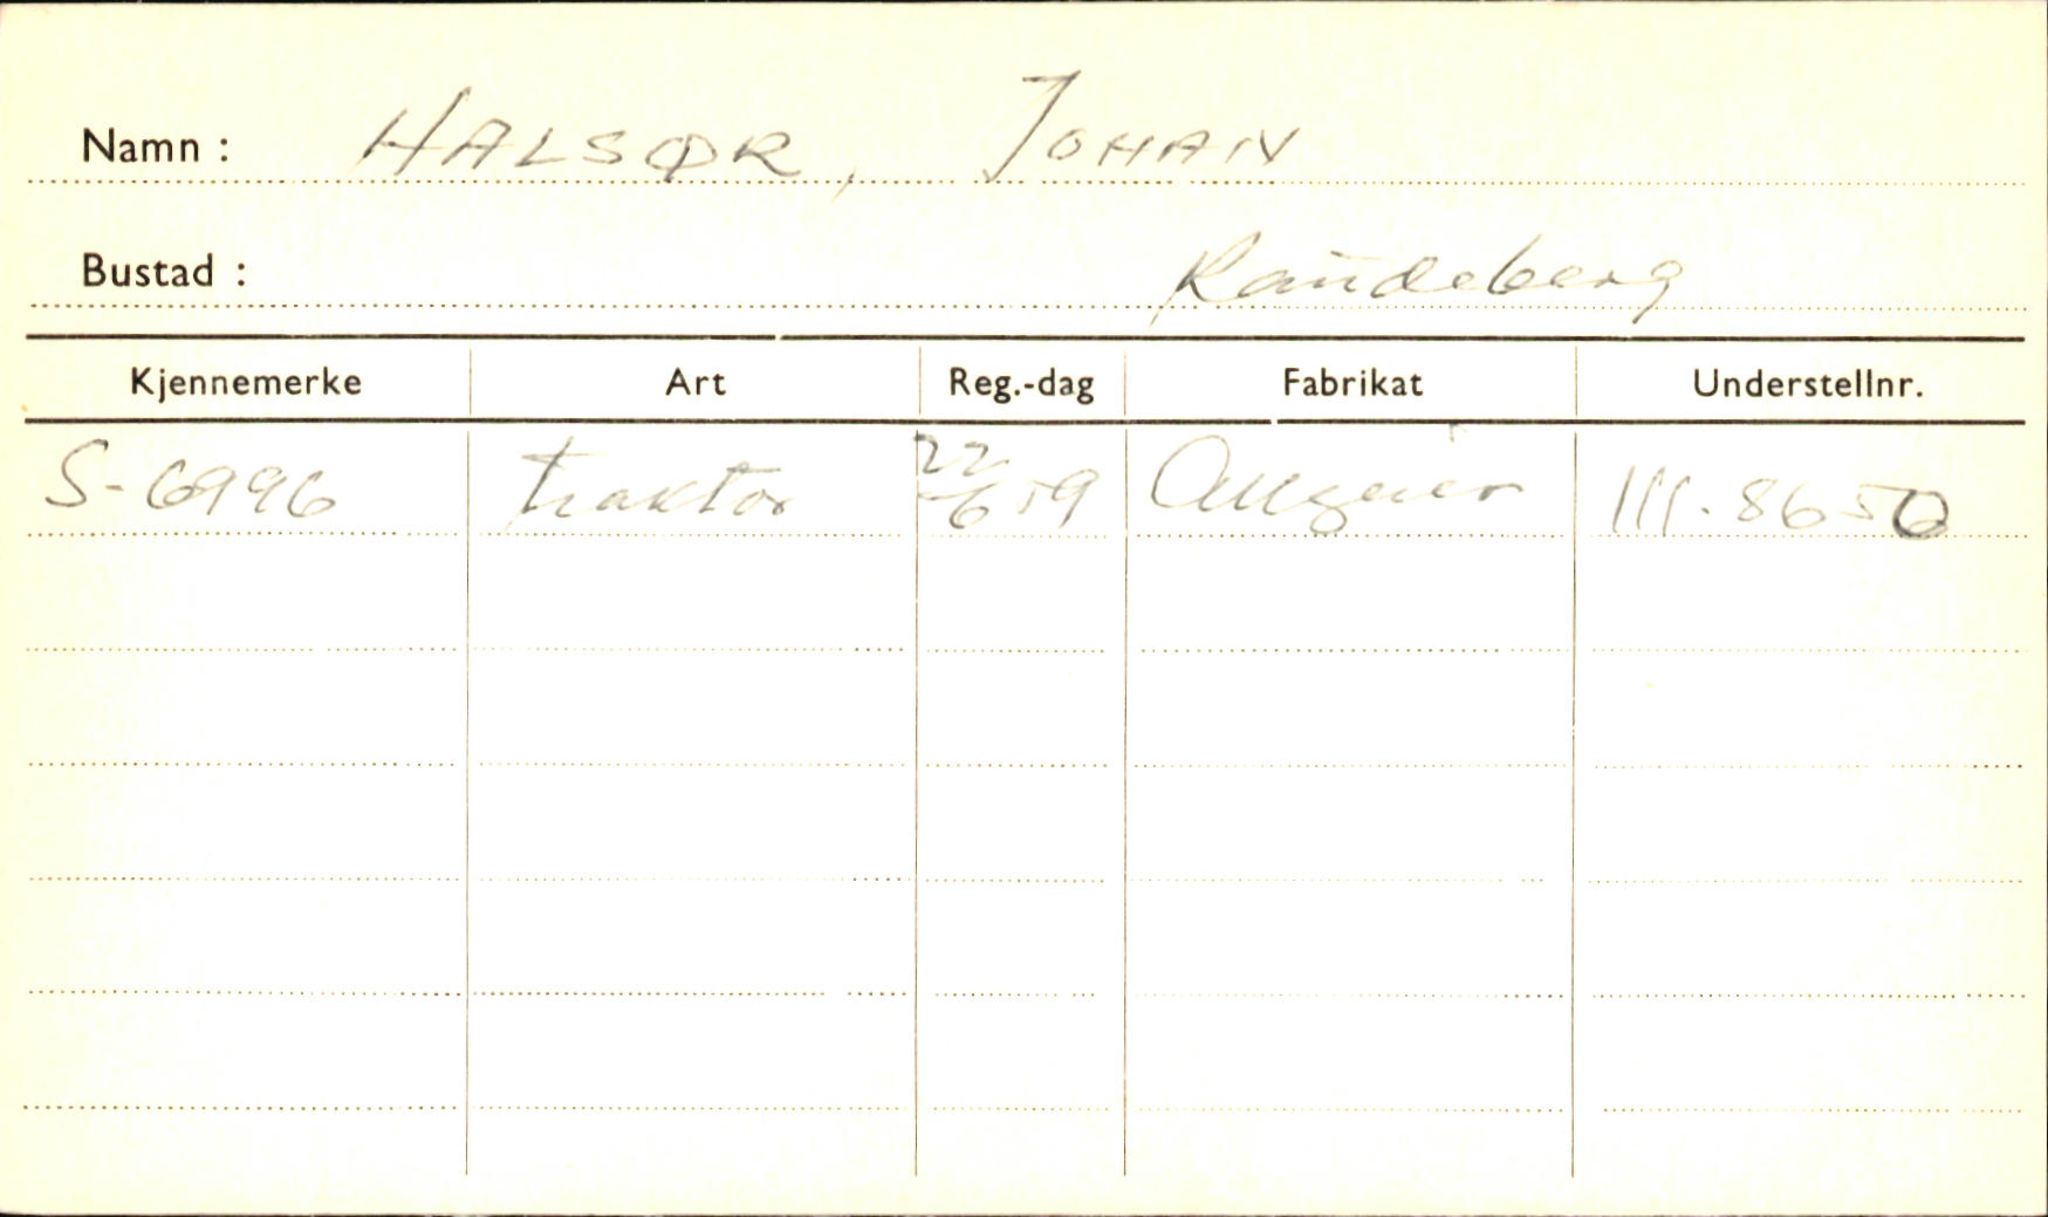 Namn : HALSØR, JOHAN
Bustad : Raudeberg
Kjennemerke Art Reg.-dag Fabrikat Understellnr.
S-6996 traktor 22/6 59 Allgaier 111.8650